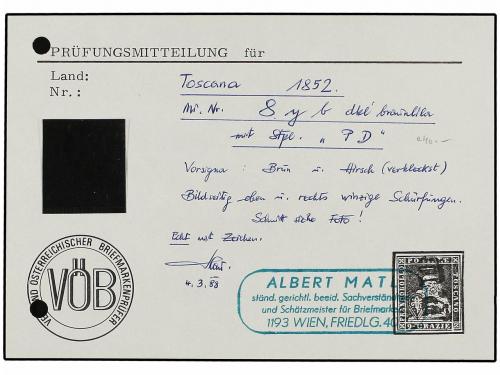 PRÜFUNGSMITTEILUNG für
Land: Toscana 1852.
Nr.: Mi. Nr. 8 y b dkl' bräunlila
mit Stpl. „PD"
Vorsigna: Brun u. Hirsch (verkleckst)
Bildseitig oben u. rechts winzige Schürfungen.
Schnitt siehe FOTO!
Echt mit Zeichen.
4.3.88
VÖB
ÖSTERREICHISCHER BRIEFMARKENPRÜFER
ALBERT MATL
ständ. gerichtl. beeid. Sachverständ
und Schätzmeister für Briefmarke
1193 WIEN, FRIEDLG. 40
9 CRAZIE